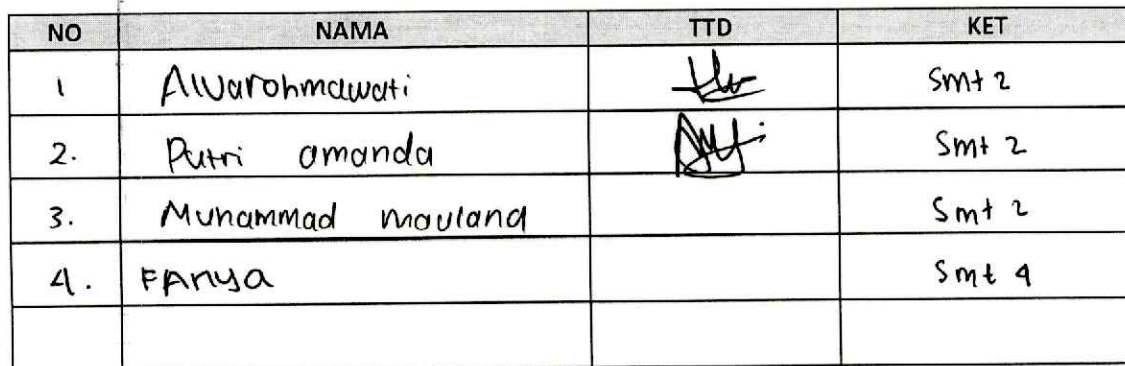 NO NAMA TTD KET
1 Alvarohmawati Smt 2
2. Putri amanda Smt 2
3. Muhammad maulana Smt 2
4. FAnya Smt 4